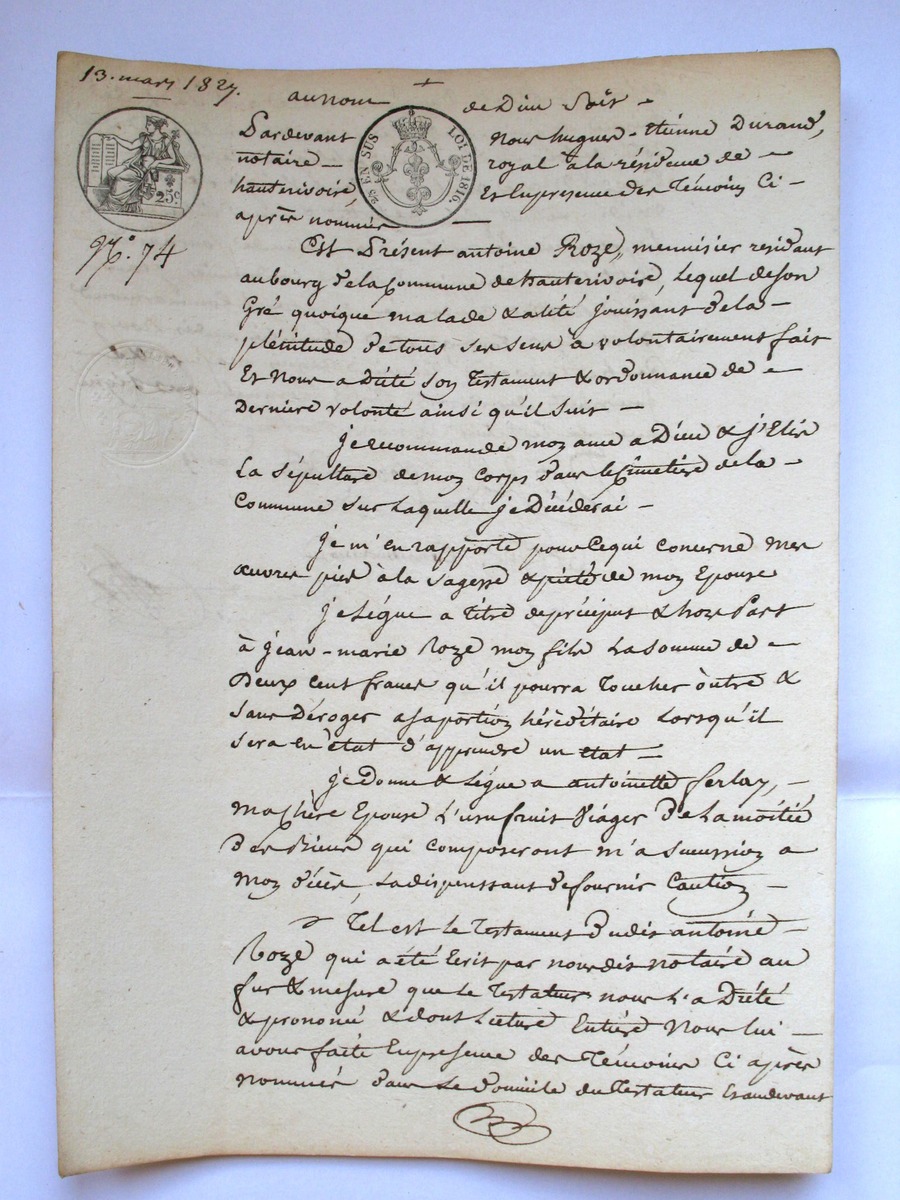 13. mars 1827.
+
au nom de Dieu Soit —
Pardevant Nous hugues - Etienne Durand,
notaire — royal à la résidence de —
hauterivoire, Et En presence des Témoins Ci —
après nommés —
25 c
EN SUS
LOI DE 1816.
N.o 74
Est Présent antoine Roze, menuisier residant
au bourg de la Commune de hauterivoire, Lequel de son
Gré quoique malade & alité jouissant de la —
plénitude de tous ses sens à volontairement fait
Et Nous a dicté son Testament & ordonnance de —
Derniere volonté ainsi qu'il suit —
je recommande mon ame a Dieu & j'Elis
La Sépulture de mon Corps dans le Cimetière de la —
Commune sur Laquelle je Décéderai —
je m'en rapporte pour Ce qui concerne mes
œuvres pies à la sagesse & piété de mon Epouse
je Légue a titre de préciput & hors Part
à jean - marie Roze mon fils La somme de —
Deux cent francs qu'il pourra Toucher òutre &
sans Déroger a sa portion héréditaire Lorsqu'il
sera En état d'apprendre un etat —
je Donne & Légue a antoinette ferlay, —
ma Chère Epouse L'usufruit Viager De La moitié
des Biens qui composeront m'a succession a
mon décès, La dispensant de fournir Caution —
Tel est le Testament dudit antoine —
Roze qui a été Ecrit par nous dit notaire au
fur & mesure que le Testateur nous L'a Dicté
& prononcé & dont Lecture Entière Nous lui —
avons faite En presence des Témoins Ci après
nommés dans Le domicile du Testateur Et audevant